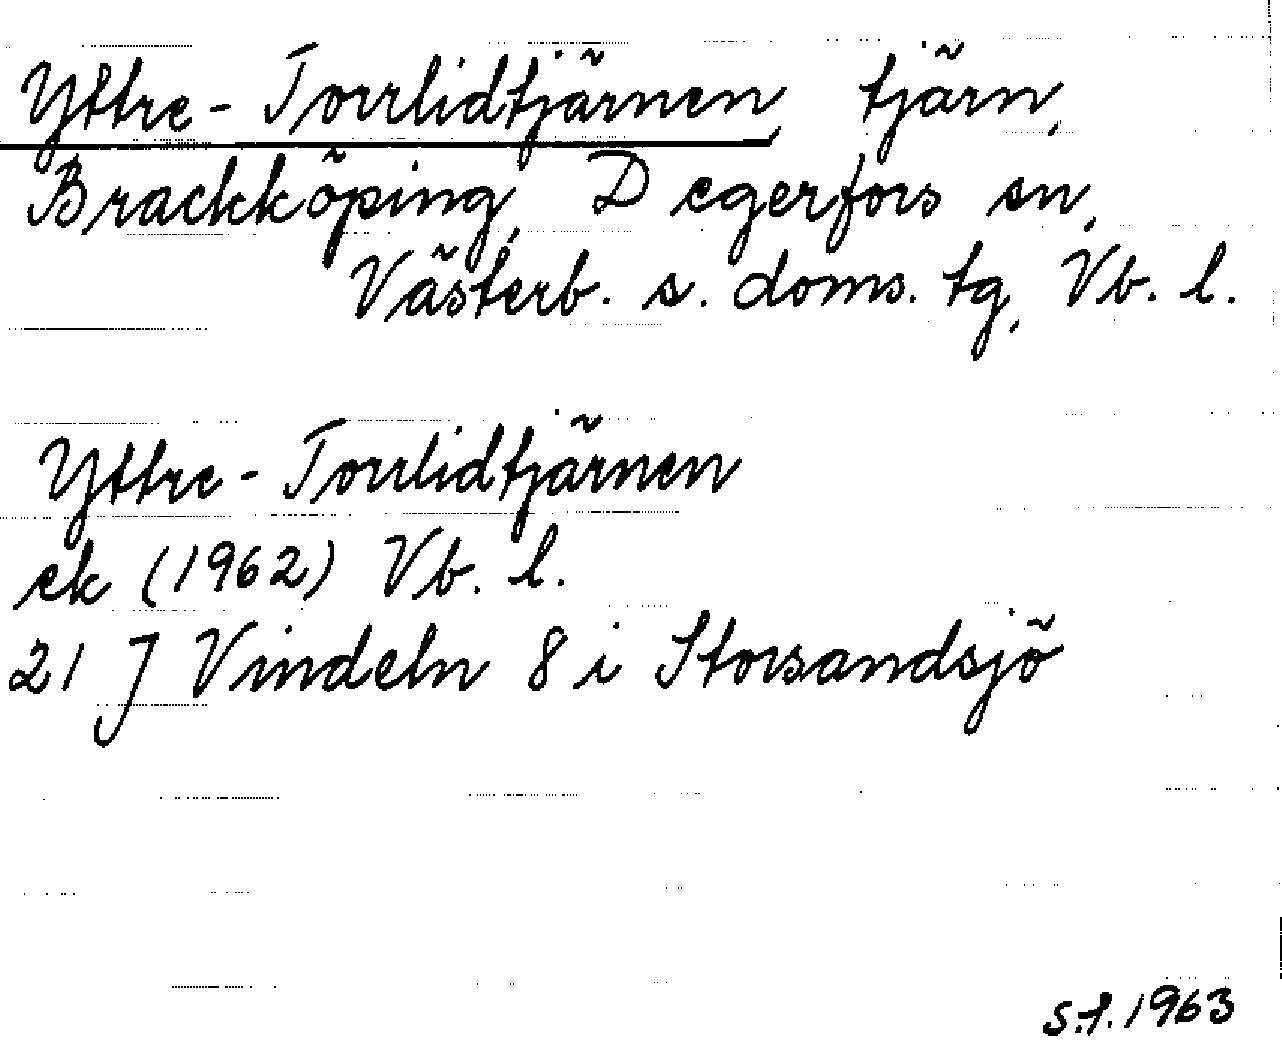 Yttre-Torrlidtjärnen, tjärn,
Brackköping, Degerfors sn,
Västerb. s. doms. tg, Vb. l.
Yttre-Torrlidtjärnen
ek (1962) Vb. l.
21 J Vindeln 8 i Storsandsjö
S.f. 1963